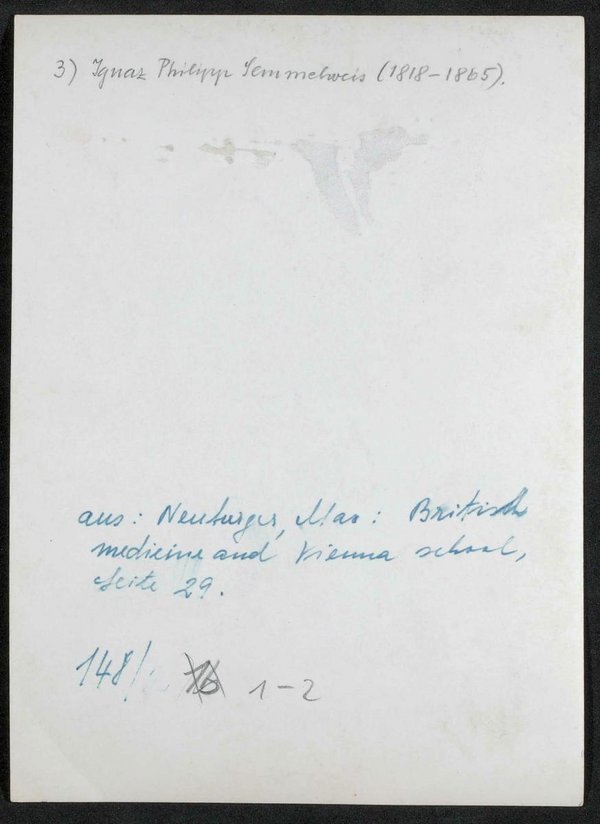 3) Ignaz Philipp Semmelweis (1818-1865).
aus: Neuburger, Max: British
medicine and Vienna school,
Seite 29.
148/ 1-2